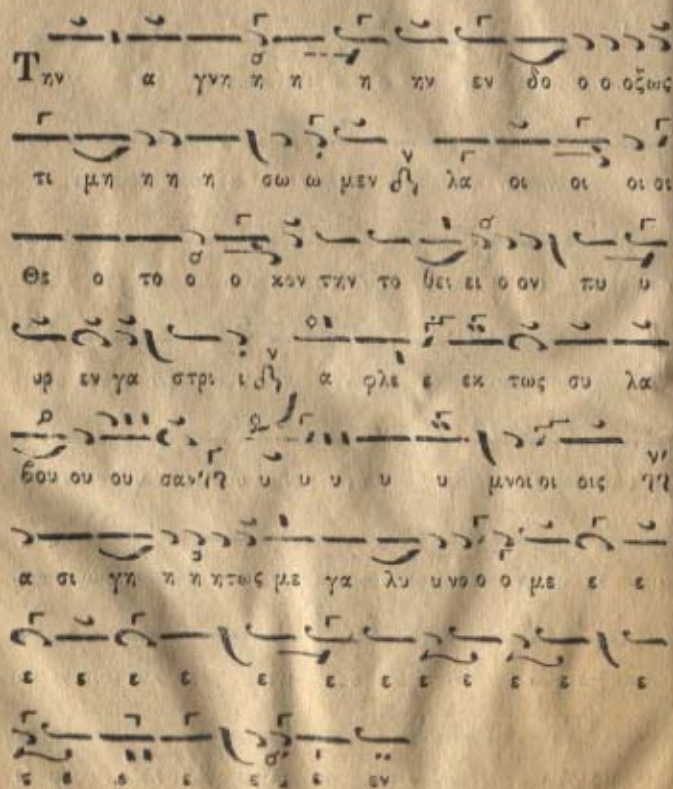 Την α γνη η η η ην εν δο ο ο οξως
τι μη η η η σω ω μεν λα οι οι οι οι
Θε ο το ο ο κον την το θει ει ο ον πυ υ
υρ εν γα στρι ι α φλε ε εκ τως συ λα
βου ου ου σαν υ υ υ υ υ μνοι οι οις
α σι γη η η ητως με γα λυ υνο ο ο με ε ε
ε ε ε ε ε ε ε ε ε ε ε ε
ε ε ε ε ε ε ε εν